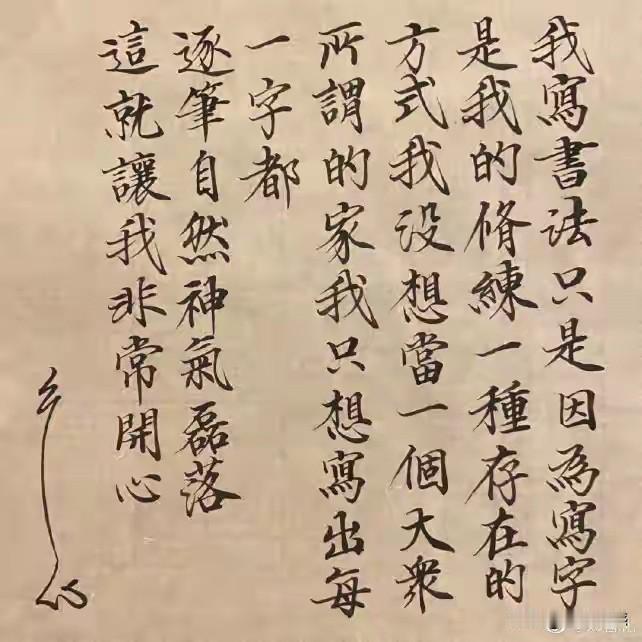 我寫書法只是因為寫字
是我的脩練一種存在的
方式我没想當一個大衆
所謂的家我只想寫出每
一字都
逐筆自然神氣磊落
這就讓我非常開心